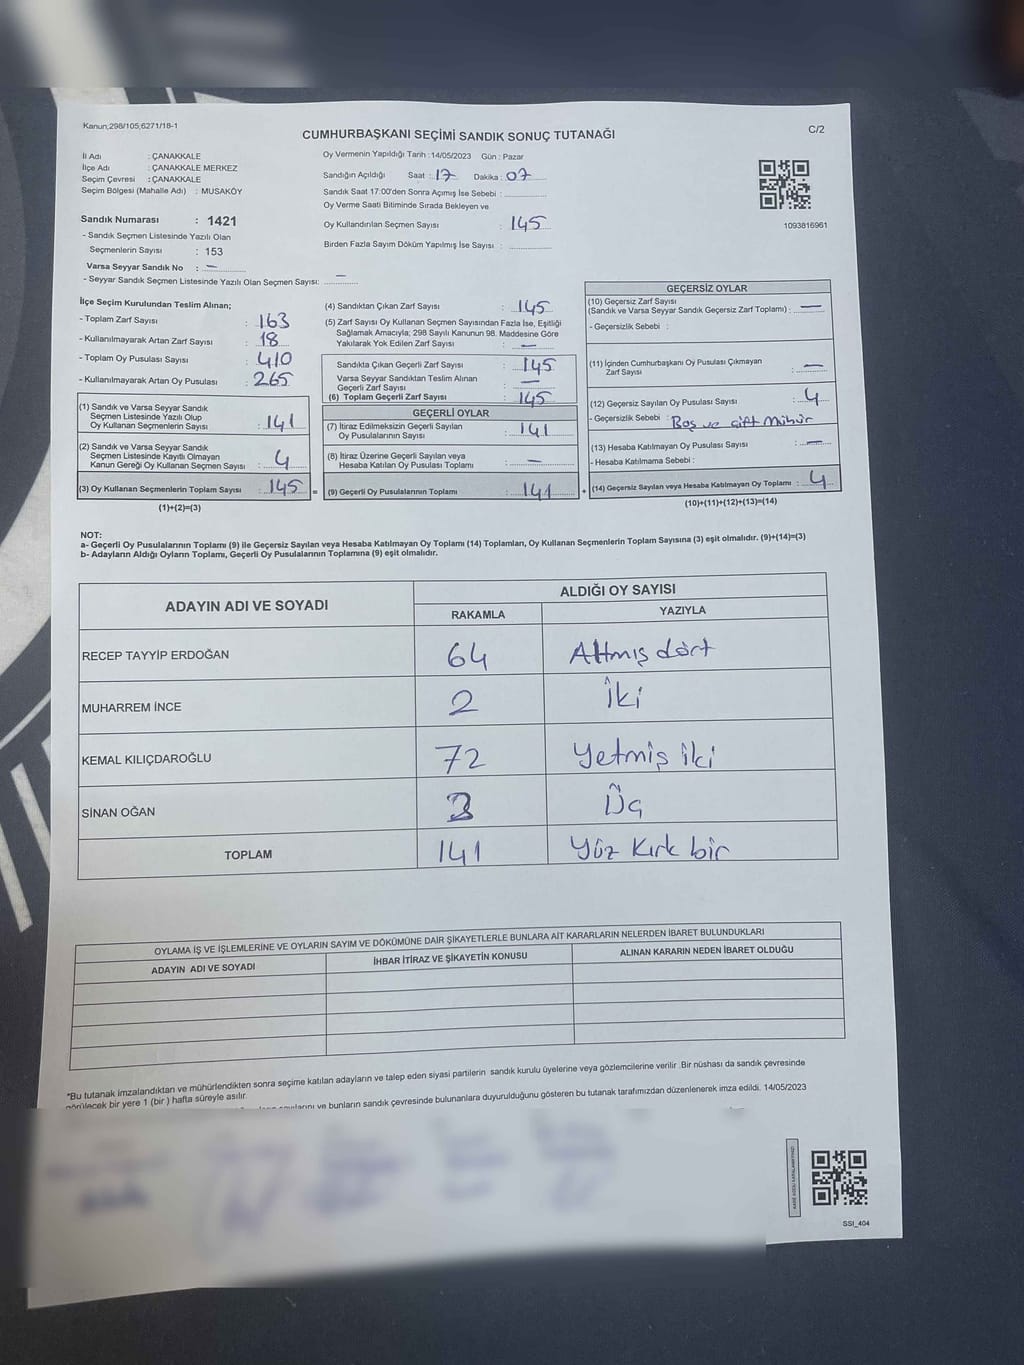 Kanun;298/105;6271/18-1
CUMHURBAŞKANI SEÇİMİ SANDIK SONUÇ TUTANAĞI
C/2
İl Adı : ÇANAKKALE
İlçe Adı : ÇANAKKALE MERKEZ
Seçim Çevresi : ÇANAKKALE
Seçim Bölgesi (Mahalle Adı) : MUSAKÖY
Sandık Numarası : 1421
- Sandık Seçmen Listesinde Yazılı Olan
Seçmenlerin Sayısı : 153
Varsa Seyyar Sandık No : —
- Seyyar Sandık Seçmen Listesinde Yazılı Olan Seçmen Sayısı: —
Oy Vermenin Yapıldığı Tarih :14/05/2023 Gün : Pazar
Sandığın Açıldığı Saat : 17 Dakika : 07
Sandık Saat 17:00'den Sonra Açımış İse Sebebi :
Oy Verme Saati Bitiminde Sırada Bekleyen ve
Oy Kullandırılan Seçmen Sayısı : 145
Birden Fazla Sayım Döküm Yapılmış İse Sayısı :
1093816961
İlçe Seçim Kurulundan Teslim Alınan;
- Toplam Zarf Sayısı : 163
- Kullanılmayarak Artan Zarf Sayısı : 18
- Toplam Oy Pusulası Sayısı : 410
- Kullanılmayarak Artan Oy Pusulası : 265
(1) Sandık ve Varsa Seyyar Sandık
Seçmen Listesinde Yazılı Olup
Oy Kullanan Seçmenlerin Sayısı : 141
(2) Sandık ve Varsa Seyyar Sandık
Seçmen Listesinde Kayıtlı Olmayan
Kanun Gereği Oy Kullanan Seçmen Sayısı : 4
(3) Oy Kullanan Seçmenlerin Toplam Sayısı : 145 =
(1)+(2)=(3)
(4) Sandıktan Çıkan Zarf Sayısı : 145
(5) Zarf Sayısı Oy Kullanan Seçmen Sayısından Fazla İse, Eşitliği
Sağlamak Amacıyla; 298 Sayılı Kanunun 98. Maddesine Göre
Yakılarak Yok Edilen Zarf Sayısı : —
Sandıkta Çıkan Geçerli Zarf Sayısı : 145
Varsa Seyyar Sandıktan Teslim Alınan
Geçerli Zarf Sayısı : —
(6) Toplam Geçerli Zarf Sayısı : 145
GEÇERLİ OYLAR
(7) İtiraz Edilmeksizin Geçerli Sayılan
Oy Pusulalarının Sayısı : 141
(8) İtiraz Üzerine Geçerli Sayılan veya
Hesaba Katılan Oy Pusulası Toplamı : —
(9) Geçerli Oy Pusulalarının Toplamı : 141 +
GEÇERSİZ OYLAR
(10) Geçersiz Zarf Sayısı
(Sandık ve Varsa Seyyar Sandık Geçersiz Zarf Toplamı) : —
- Geçersizlik Sebebi :
(11) İçinden Cumhurbaşkanı Oy Pusulası Çıkmayan
Zarf Sayısı : —
(12) Geçersiz Sayılan Oy Pusulası Sayısı : 4
- Geçersizlik Sebebi : Boş ve çift mühür
(13) Hesaba Katılmayan Oy Pusulası Sayısı : —
- Hesaba Katılmama Sebebi :
(14) Geçersiz Sayılan veya Hesaba Katılmayan Oy Toplamı : 4
(10)+(11)+(12)+(13)=(14)
NOT:
a- Geçerli Oy Pusulalarının Toplamı (9) ile Geçersiz Sayılan veya Hesaba Katılmayan Oy Toplamı (14) Toplamları, Oy Kullanan Seçmenlerin Toplam Sayısına (3) eşit olmalıdır. (9)+(14)=(3)
b- Adayların Aldığı Oyların Toplamı, Geçerli Oy Pusulalarının Toplamına (9) eşit olmalıdır.
ADAYIN ADI VE SOYADI
ALDIĞI OY SAYISI
RAKAMLA YAZIYLA
RECEP TAYYİP ERDOĞAN 64 Altmış dört
MUHARREM İNCE 2 İki
KEMAL KILIÇDAROĞLU 72 Yetmiş iki
SİNAN OĞAN 3 Üç
TOPLAM 141 Yüz Kırk bir
OYLAMA İŞ VE İŞLEMLERİNE VE OYLARIN SAYIM VE DÖKÜMÜNE DAİR ŞİKAYETLERLE BUNLARA AİT KARARLARIN NELERDEN İBARET BULUNDUKLARI
ADAYIN ADI VE SOYADI İHBAR İTİRAZ VE ŞİKAYETİN KONUSU ALINAN KARARIN NEDEN İBARET OLDUĞU
*Bu tutanak imzalandıktan ve mühürlendikten sonra seçime katılan adayların ve talep eden siyasi partilerin sandık kurulu üyelerine veya gözlemcilerine verilir .Bir nüshası da sandık çevresinde
görülecek bir yere 1 (bir ) hafta süreyle asılır.
ve bunların sandık çevresinde bulunanlara duyurulduğunu gösteren bu tutanak tarafımızdan düzenlenerek imza edildi. 14/05/2023
SSI_404